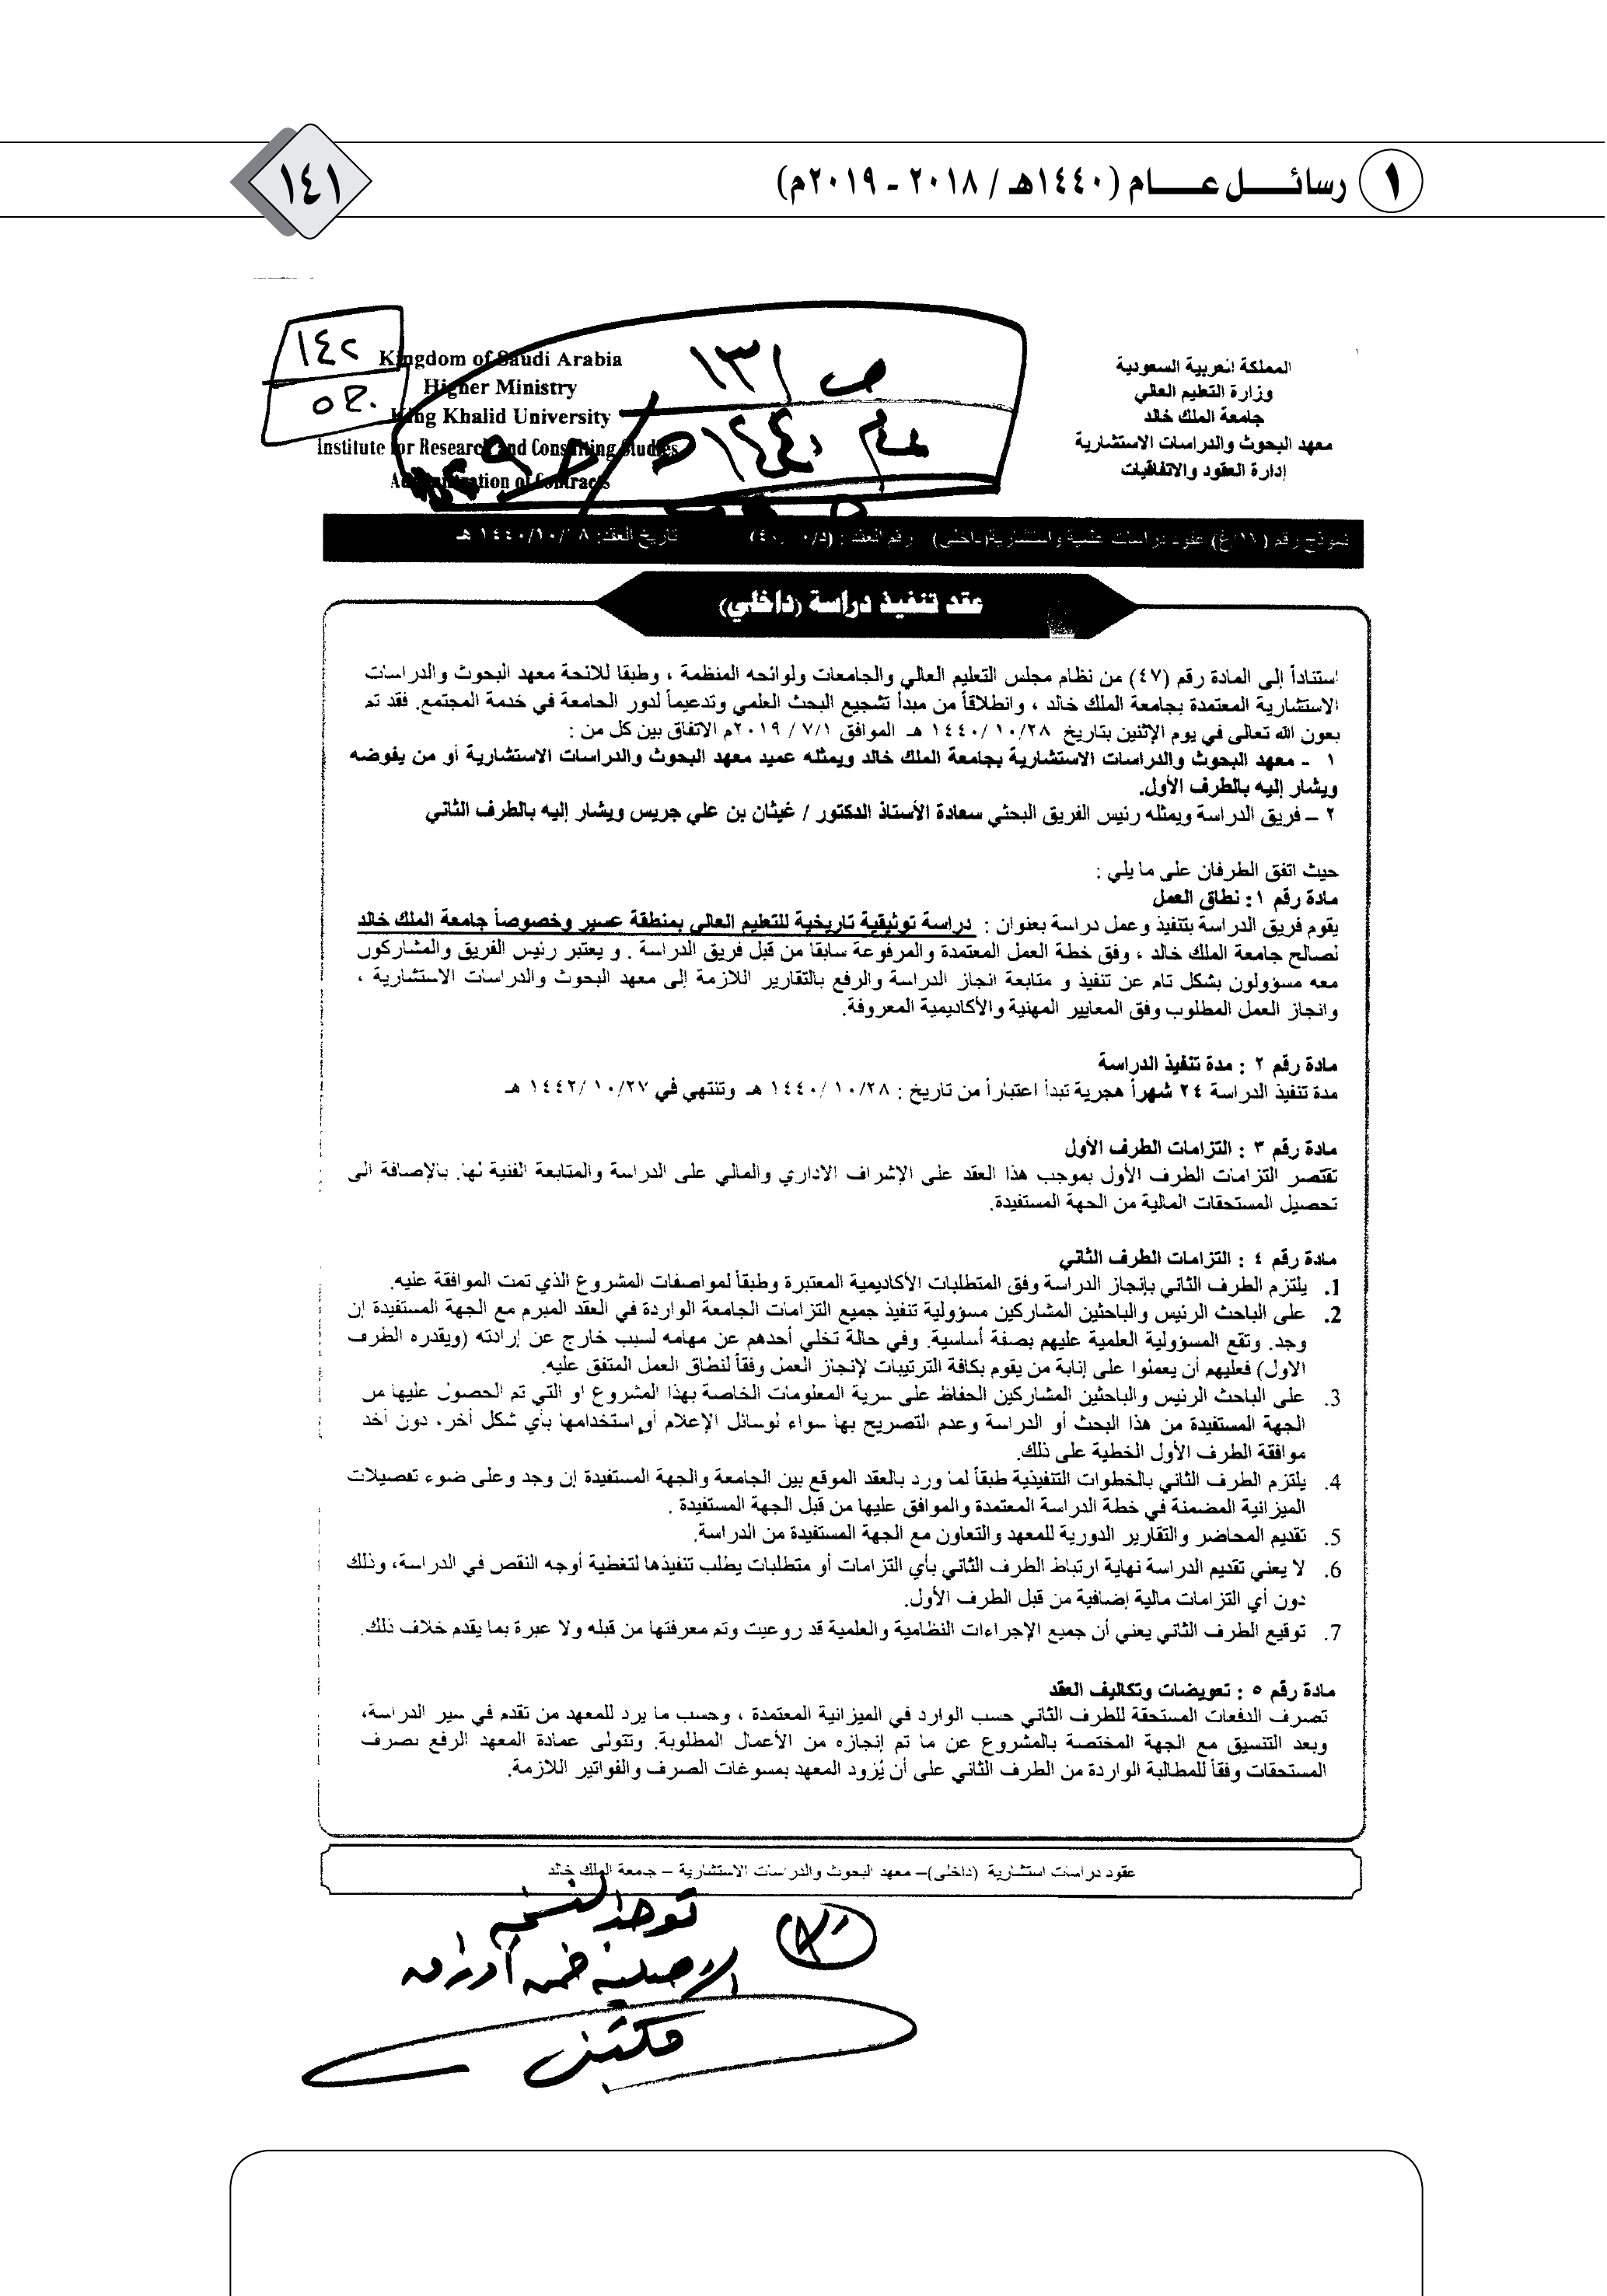 ١ رسائــــل عــــام (١٤٤٠هـ / ٢٠١٨ - ٢٠١٩م)
١٤١
المملكة العربية السعودية
وزارة التعليم العالي
جامعة الملك خالد
معهد البحوث والدراسات الاستشارية
إدارة العقود والاتفاقيات
Kingdom of Saudi Arabia
Higher Ministry
King Khalid University
Institute for Research and Consulting Studies
Administration of Contracts
١٤٢
٥٢٠
ص ١٣١
عام ١٤٤٠هـ
نموذج رقم (١١/غ) عقود دراسات علمية واستشارية(داخلي) رقم العقد : تاريخ العقد:
عقد تنفيذ دراسة (داخلي)
استناداً إلى المادة رقم (٤٧) من نظام مجلس التعليم العالي والجامعات ولوائحه المنظمة ، وطبقا للائحة معهد البحوث والدراسات
الاستشارية المعتمدة بجامعة الملك خالد ، وانطلاقاً من مبدأ تشجيع البحث العلمي وتدعيماً لدور الجامعة في خدمة المجتمع. فقد تم
بعون الله تعالى في يوم الإثنين بتاريخ ١٤٤٠/١٠/٢٨ هـ الموافق ٢٠١٩/٧/١م الاتفاق بين كل من :
١ - معهد البحوث والدراسات الاستشارية بجامعة الملك خالد ويمثله عميد معهد البحوث والدراسات الاستشارية أو من يفوضه
ويشار إليه بالطرف الأول.
٢ – فريق الدراسة ويمثله رئيس الفريق البحثي سعادة الأستاذ الدكتور / غيثان بن علي جريس ويشار إليه بالطرف الثاني
حيث اتفق الطرفان على ما يلي :
مادة رقم ١: نطاق العمل
يقوم فريق الدراسة بتنفيذ وعمل دراسة بعنوان : دراسة توثيقية تاريخية للتعليم العالي بمنطقة عسير وخصوصاً جامعة الملك خالد
لصالح جامعة الملك خالد ، وفق خطة العمل المعتمدة والمرفوعة سابقا من قبل فريق الدراسة . و يعتبر رئيس الفريق والمشاركون
معه مسؤولون بشكل تام عن تنفيذ و متابعة انجاز الدراسة والرفع بالتقارير اللازمة إلى معهد البحوث والدراسات الاستشارية ،
وانجاز العمل المطلوب وفق المعايير المهنية والأكاديمية المعروفة.
مادة رقم ٢ : مدة تنفيذ الدراسة
مدة تنفيذ الدراسة ٢٤ شهراً هجرية تبدأ اعتباراً من تاريخ : ١٤٤٠/١٠/٢٨ هـ وتنتهي في ١٤٤٢/١٠/٢٧ هـ
مادة رقم ٣ : التزامات الطرف الأول
تقتصر التزامات الطرف الأول بموجب هذا العقد على الإشراف الاداري والمالي على الدراسة والمتابعة الفنية لها. بالإضافة الى
تحصيل المستحقات المالية من الجهة المستفيدة.
مادة رقم ٤ : التزامات الطرف الثاني
1. يلتزم الطرف الثاني بإنجاز الدراسة وفق المتطلبات الأكاديمية المعتبرة وطبقاً لمواصفات المشروع الذي تمت الموافقة عليه.
2. على الباحث الرئيس والباحثين المشاركين مسؤولية تنفيذ جميع التزامات الجامعة الواردة في العقد المبرم مع الجهة المستفيدة إن
وجد. وتقع المسؤولية العلمية عليهم بصفة أساسية. وفي حالة تخلي أحدهم عن مهامه لسبب خارج عن إرادته (ويقدره الطرف
الاول) فعليهم أن يعملوا على إنابة من يقوم بكافة الترتيبات لإنجاز العمل وفقاً لنطاق العمل المتفق عليه.
3. على الباحث الرئيس والباحثين المشاركين الحفاظ على سرية المعلومات الخاصة بهذا المشروع او التي تم الحصول عليها من
الجهة المستفيدة من هذا البحث أو الدراسة وعدم التصريح بها سواء لوسائل الإعلام أو استخدامها بأي شكل أخر، دون أخذ
موافقة الطرف الأول الخطية على ذلك.
4. يلتزم الطرف الثاني بالخطوات التنفيذية طبقاً لما ورد بالعقد الموقع بين الجامعة والجهة المستفيدة إن وجد وعلى ضوء تفصيلات
الميزانية المضمنة في خطة الدراسة المعتمدة والموافق عليها من قبل الجهة المستفيدة .
5. تقديم المحاضر والتقارير الدورية للمعهد والتعاون مع الجهة المستفيدة من الدراسة.
6. لا يعني تقديم الدراسة نهاية ارتباط الطرف الثاني بأي التزامات أو متطلبات يطلب تنفيذها لتغطية أوجه النقص في الدراسة، وذلك
دون أي التزامات مالية إضافية من قبل الطرف الأول.
7. توقيع الطرف الثاني يعني أن جميع الإجراءات النظامية والعلمية قد روعيت وتم معرفتها من قبله ولا عبرة بما يقدم خلاف ذلك.
مادة رقم ٥ : تعويضات وتكاليف العقد
تصرف الدفعات المستحقة للطرف الثاني حسب الوارد في الميزانية المعتمدة ، وحسب ما يرد للمعهد من تقدم في سير الدراسة،
وبعد التنسيق مع الجهة المختصة بالمشروع عن ما تم إنجازه من الأعمال المطلوبة. وتتولى عمادة المعهد الرفع بصرف
المستحقات وفقاً للمطالبة الواردة من الطرف الثاني على أن يُزود المعهد بمسوغات الصرف والفواتير اللازمة.
عقود دراسات استشارية (داخلي)– معهد البحوث والدراسات الاستشارية – جامعة الملك خالد
توجد النسخة
الاصلية ضمن أوراق
مكتبتي